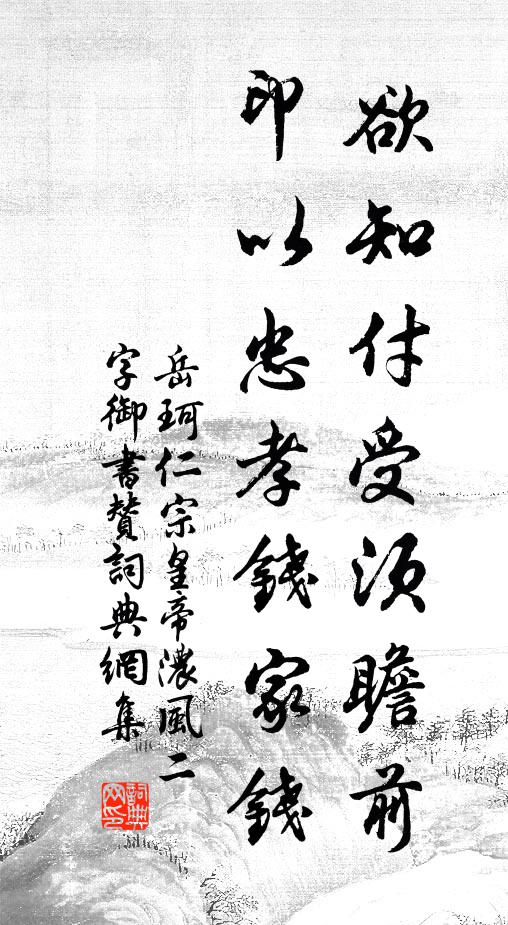 欲知付受須瞻前
印以忠孝錢家錢
岳珂仁宗皇帝濃風二
字御書贊詞典網集
詞典网印